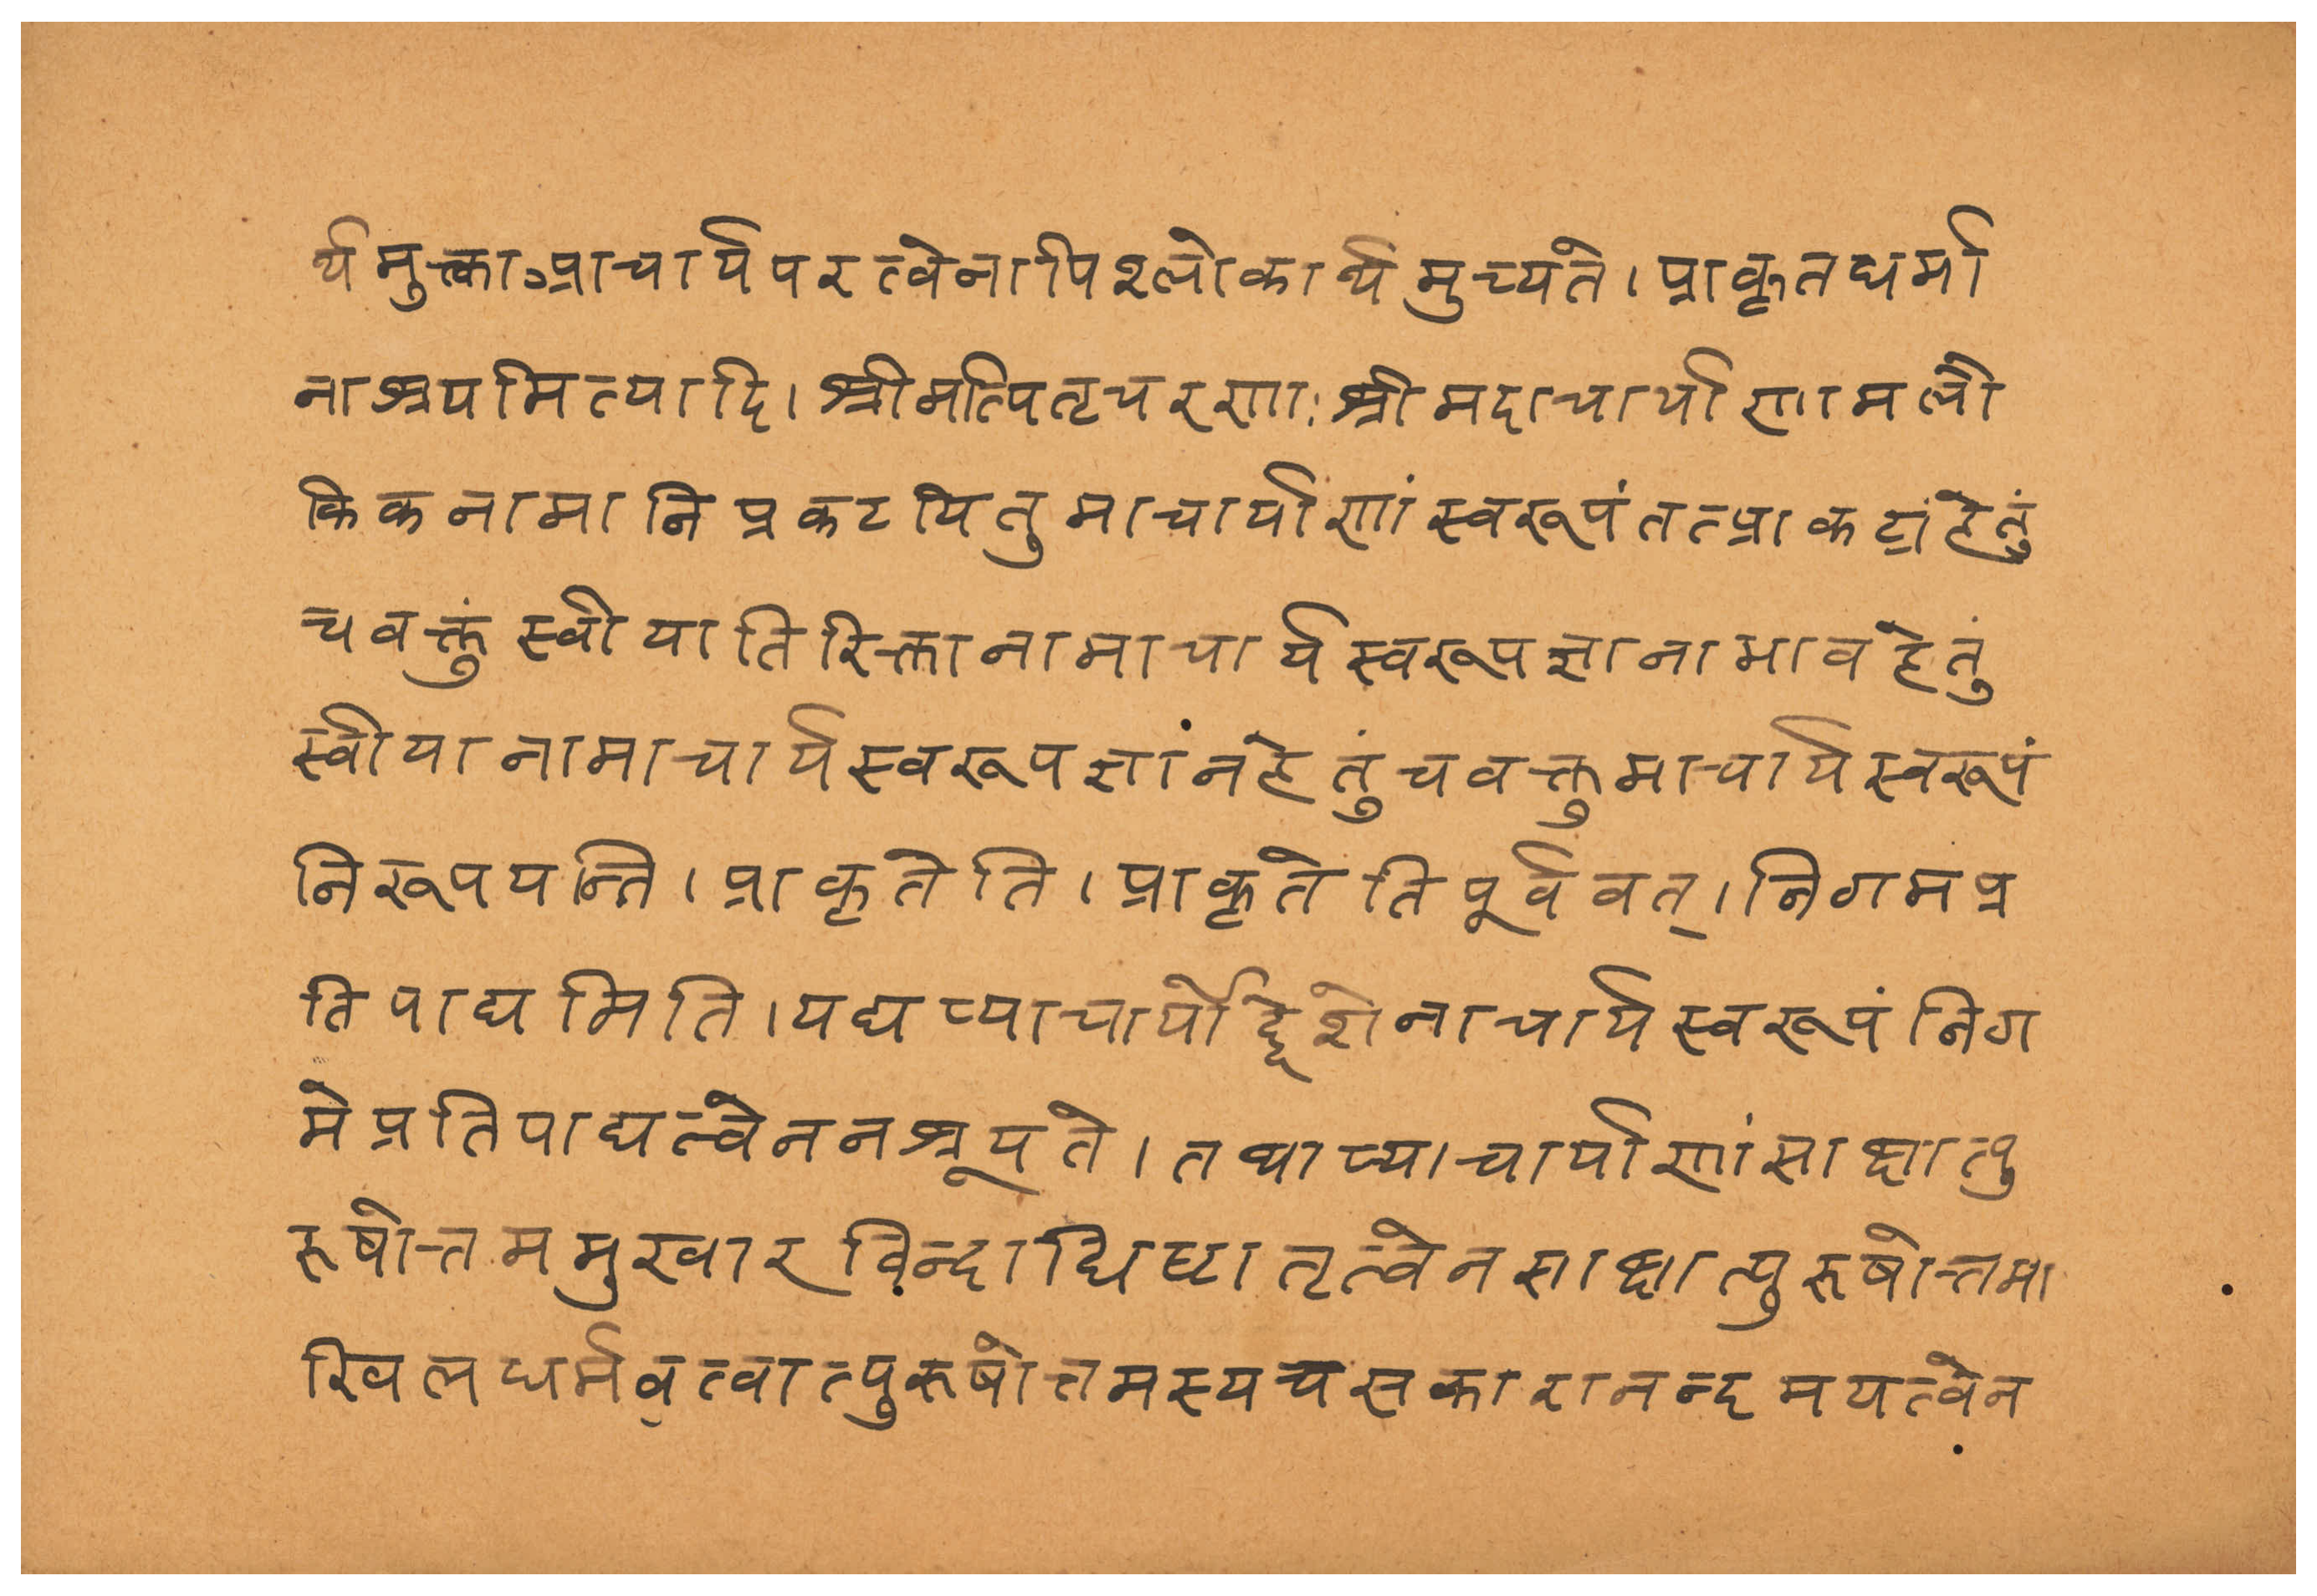 र्थमुक्ताऽप्राचार्यपरत्वेनापिश्लोकार्थमुच्यते। प्राकृतधर्मा
नाश्रयमित्यादि। श्रीमत्पितृचरणाः श्रीमदाचार्याणामलौ
किकनामानिप्रकटयितुमाचार्याणांस्वरूपंतत्प्राकट्यहेतुं
चवक्तुं स्वीयातिरिक्तानामाचार्यस्वरूपज्ञानाभावहेतुं
स्वीयानामाचार्यस्वरूपज्ञांनहेतुंचवक्तुमाचार्यस्वरूपं
निरूपयन्ति। प्राकृतेति। प्राकृतेतिपूर्ववत्। निगमप्र
तिपाद्यमिति। यद्यप्याचार्योद्देशेनाचार्यस्वरूपं निग
मेप्रतिपाद्यत्वेननश्रूयते। तथाप्याचार्याणांसाक्षात्पु
रूषोत्तममुखारविन्दाधिष्टातृत्वेनसाक्षात्पुरूषोत्तमा
खिलधर्मवत्वात्पुरूषोत्तमस्यचसकारानन्दमयत्वेन